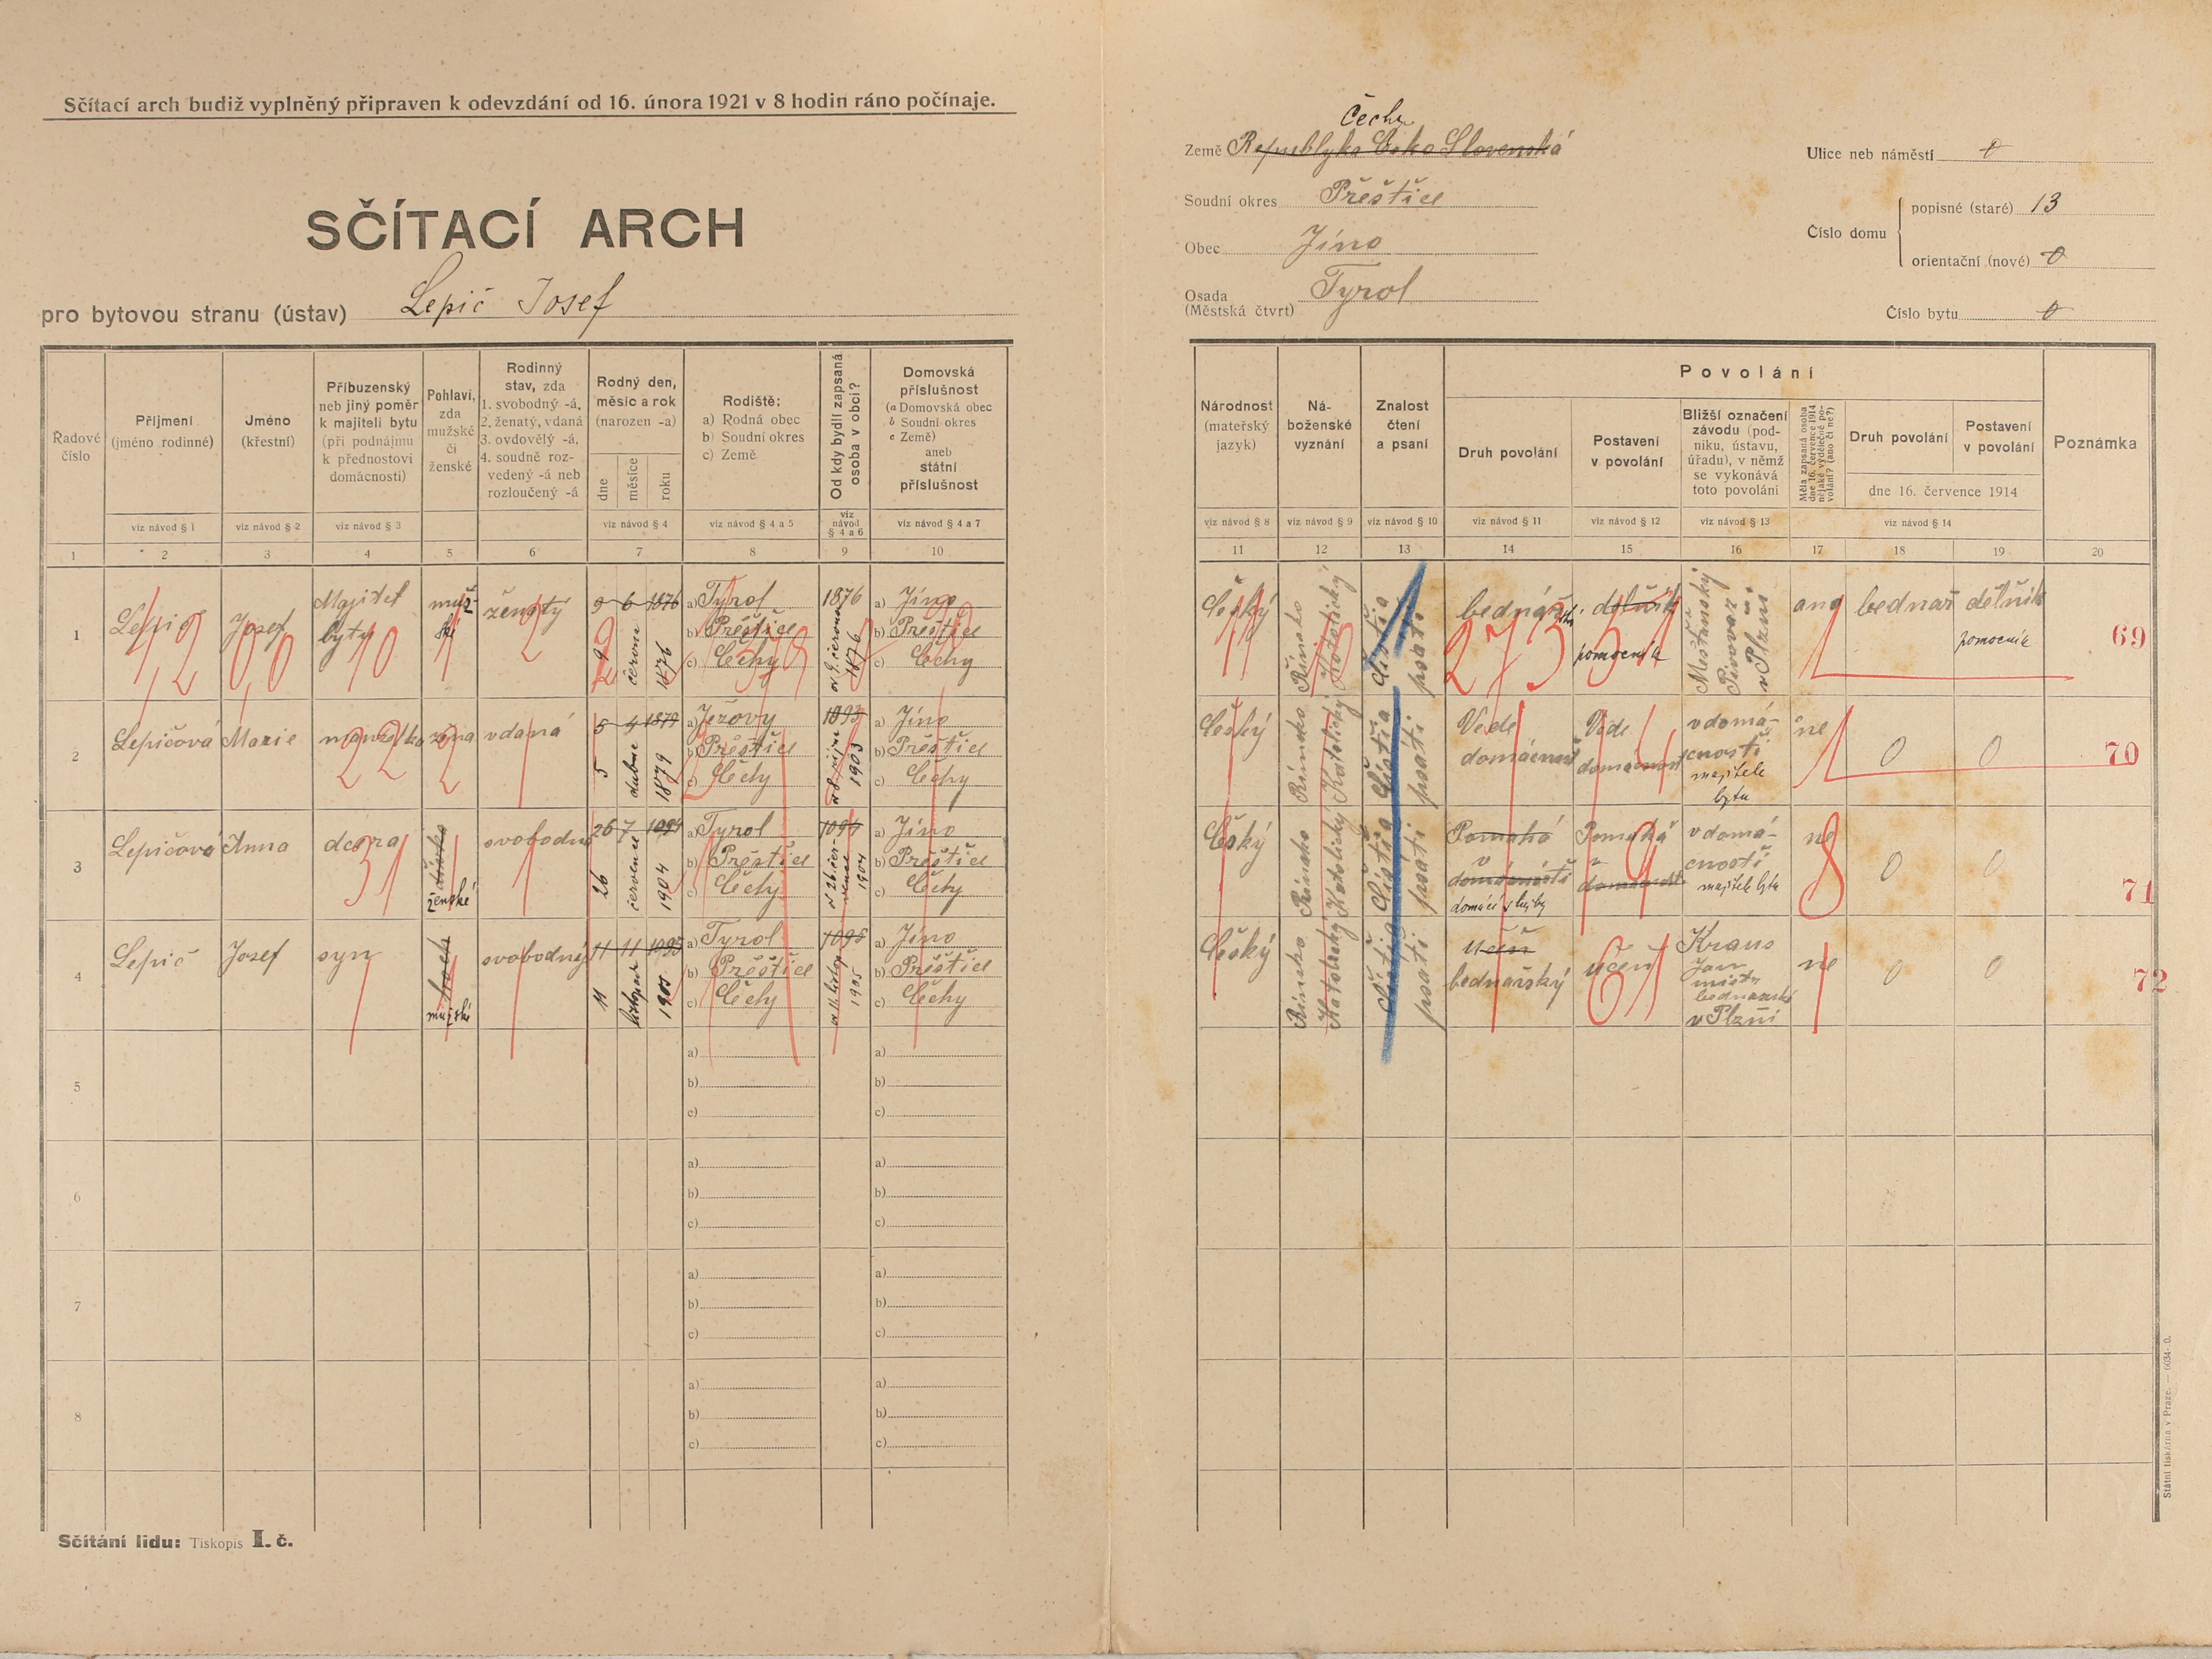 Sčítací arch budiž vyplněný připraven k odevzdání od 16. února 1921 v 8 hodin ráno počínaje.
SČÍTACÍ ARCH
pro bytovou stranu (ústav) Lepič Josef
Čechy
Země Republyka Česko Slovenská
Soudní okres Přěštice
Obec Jíno
Osada Tyrol
(Městská čtvrt)
Ulice neb náměstí 0
Číslo domu
popisné (staré) 13
orientační (nové) 0
Číslo bytu 0
Řadové číslo
Příjmení (jméno rodinné)
Jméno (křestní)
Příbuzenský neb jiný poměr k majiteli bytu (při podnájmu k přednostovi domácnosti)
Pohlaví, zda mužské či ženské
Rodinný stav, zda 1. svobodný -á, 2. ženatý, vdaná 3. ovdovělý -á, 4. soudně rozvedený -á neb rozloučený -á
Rodný den, měsíc a rok (narozen -a)
dne měsíce roku
Rodiště: a) Rodná obec b) Soudní okres c) Země
Od kdy bydlí zapsaná osoba v obci?
Domovská příslušnost (a Domovská obec b Soudní okres c Země) aneb státní příslušnost
viz návod § 1 viz návod § 2 viz návod § 3 viz návod § 4 viz návod § 4 a 5 viz návod § 4 a 6 viz návod § 4 a 7
1 2 3 4 5 6 7 8 9 10
Národnost (mateřský jazyk)
Náboženské vyznání
Znalost čtení a psaní
Povolání
Druh povolání
Postavení v povolání
Bližší označení závodu (podniku, ústavu, úřadu), v němž se vykonává toto povolání
Měla zapsaná osoba dne 16. července 1914 nějaké výdělečné povolání? (ano či ne?)
Druh povolání
Postavení v povolání
dne 16. července 1914
Poznámka
viz návod § 8 viz návod § 9 viz návod § 10 viz návod § 11 viz návod § 12 viz návod § 13 viz návod § 14
11 12 13 14 15 16 17 18 19 20
1 Lepič Josef Majitel bytu mužské ženatý 9 6 1876
9 června 1876
a) Tyrol
b) Přěštice
c) Čechy
1876
od 9. června 1876
a) Jíno
b) Přěštice
c) Čechy
Český Římsko Katolický čísti a psáti bednář dělník pomocník Mešťanský Pivovar v Plzni ano bednař dělník pomocník 69
2 Lepičová Marie manželka žena vdaná 5 4 1879
5 dubna 1879
a) Ježovy
b) Přěštice
c) Čechy
1893
od 8. října 1903
a) Jíno
b) Přěštice
c) Čechy
Český Římsko Katolický čísti a psáti Vede domácnost Vede domácnost v domácnosti majitele bytu ne 0 0 70
3 Lepičová Anna dcera ženské svobodná 26 7 1904
26 července 1904
a) Tyrol
b) Přěštice
c) Čechy
od 26. července 1904
a) Jíno
b) Přěštice
c) Čechy
Český Římsko Katolický čísti a psáti Pomahá v domácnosti domácí služby Pomahá v domácnosti v domácnosti majitele bytu ne 0 0 71
4 Lepič Josef syn mužské svobodný 11 11
11 listopad 1905
a) Tyrol
b) Přěštice
c) Čechy
od 11. listop. 1905
a) Jíno
b) Přěštice
c) Čechy
Český Římsko Katolický čísti a psati učeň bednařský učeň Kraus Jan mistr bednarský v Plzni ne 0 0 72
5 a) b) c) a) b) c)
6 a) b) c) a) b) c)
7 a) b) c) a) b) c)
8 a) b) c) a) b) c)
Sčítání lidu: Tiskopis I. č.
Státní tiskárna v Praze. — 6034-0.